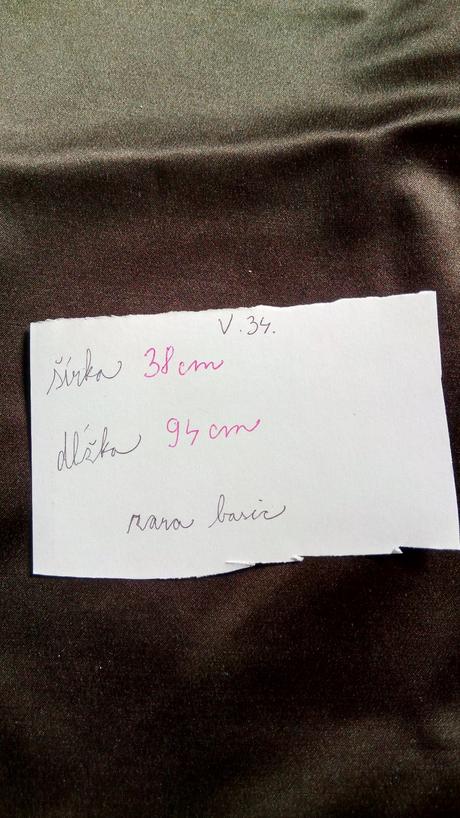 V.34.
šírka 38cm
dĺžka 94cm
zara basic